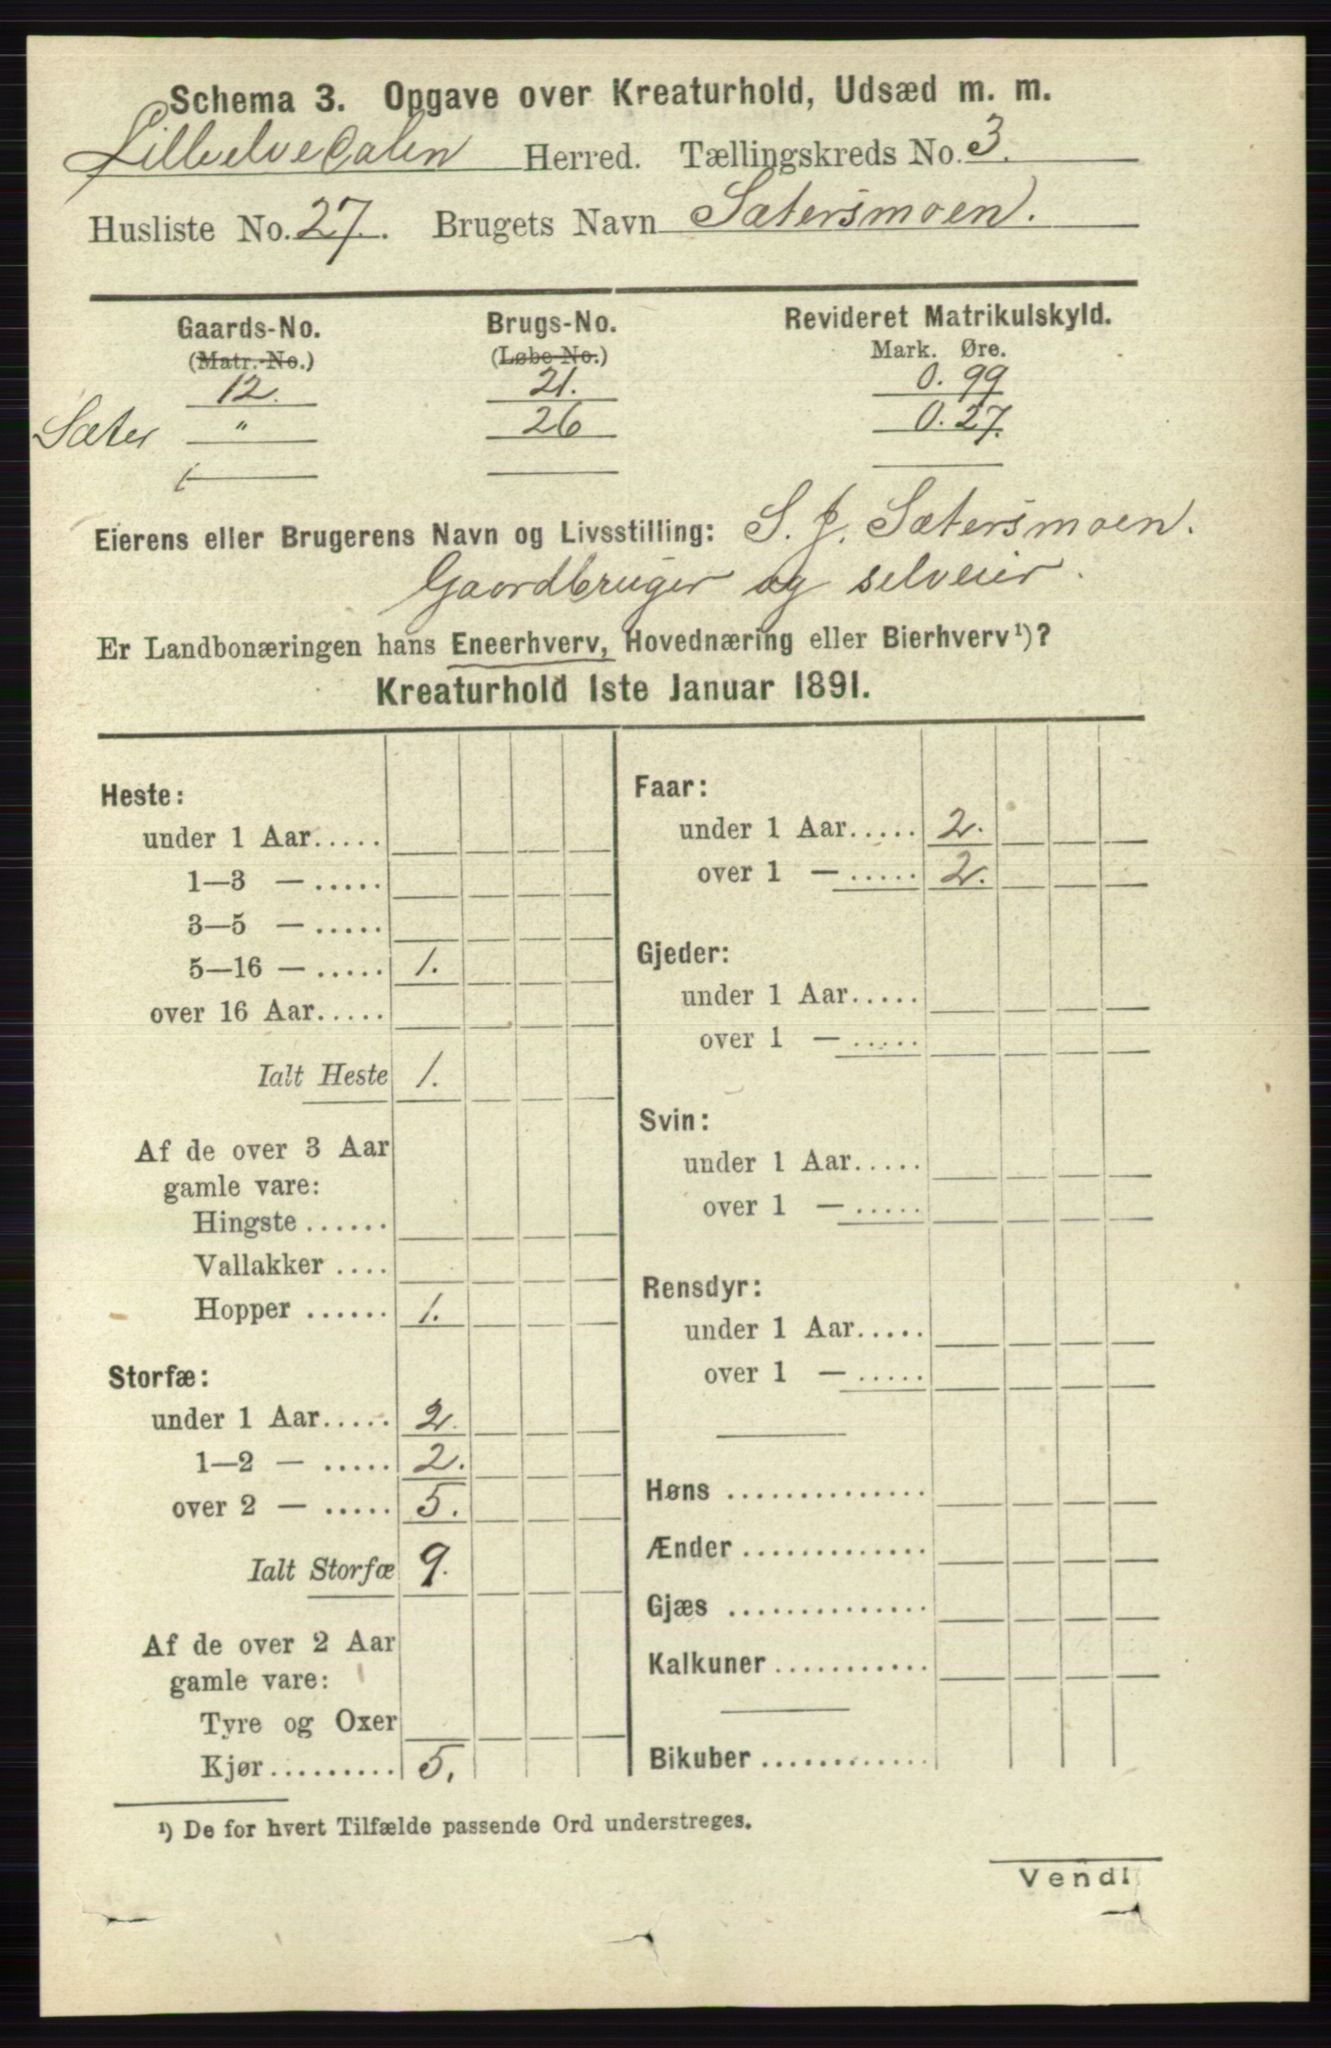 Schema 3. Opgave over Kreaturhold, Udsæd m. m.
Lilleelvedalen Herred. Tællingskreds No. 3.
Husliste No. 27. Brugets Navn Sætersmoen.
Gaards-No. Brugs-No. Revideret Matrikulskyld.
(Matr.-No.) (Løbe-No.) Mark. Øre.
12. 21. 0. 99
Sæter " 26 0. 27.
Eierens eller Brugerens Navn og Livsstilling: S. J. Sætersmoen.
Gaardbruger og selveier.
Er Landbonæringen hans Eneerhverv, Hovednæring eller Bierhverv¹)?
Kreaturhold 1ste Januar 1891.
Heste:
under 1 Aar.....
1—3 — .....
3—5 — .....
5—16 — ..... 1.
over 16 Aar.....
Ialt Heste 1.
Af de over 3 Aar
gamle vare:
Hingste ......
Vallakker ....
Hopper ...... 1.
Storfæ:
under 1 Aar..... 2.
1—2 — ..... 2.
over 2 — ..... 5.
Ialt Storfæ 9.
Af de over 2 Aar
gamle vare:
Tyre og Oxer
Kjør......... 5.
Faar:
under 1 Aar..... 2.
over 1 — ..... 2.
Gjeder:
under 1 Aar.....
over 1 — .....
Svin:
under 1 Aar.....
over 1 — .....
Rensdyr:
under 1 Aar.....
over 1 — .....
Høns ..............
Ænder .............
Gjæs ..............
Kalkuner...........
Bikuber ............
¹) De for hvert Tilfælde passende Ord understreges.
Vend!